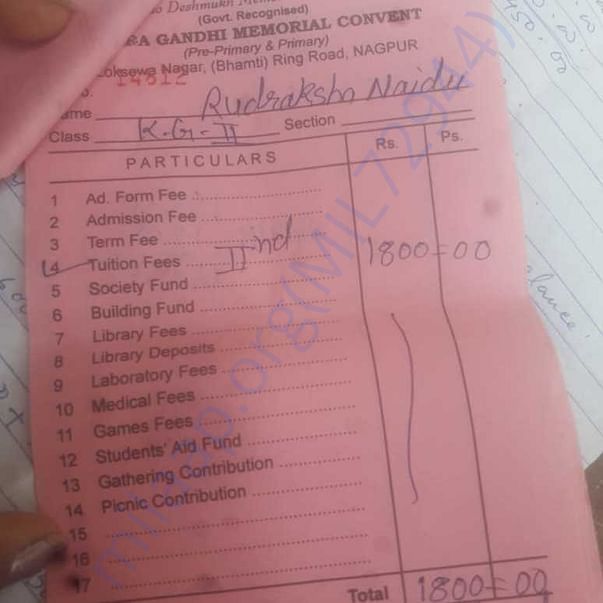 Deshmukh
(Govt. Recognised)
GANDHI MEMORIAL CONVENT
(Pre-Primary & Primary)
Loksewa Nagar, (Bhamti) Ring Road, NAGPUR
14812
ame Rudraksha Naidu
Class K.G-II Section
PARTICULARS Rs. Ps.
1 Ad. Form Fee
2 Admission Fee
3 Term Fee
4 Tuition Fees IInd 1800=00
5 Society Fund
6 Building Fund
7 Library Fees
8 Library Deposits
9 Laboratory Fees
10 Medical Fees
11 Games Fees
12 Students' Aid Fund
13 Gathering Contribution
14 Picnic Contribution
15
16
17
Total 1800=00
milaap.org(MIL72944)
450.00